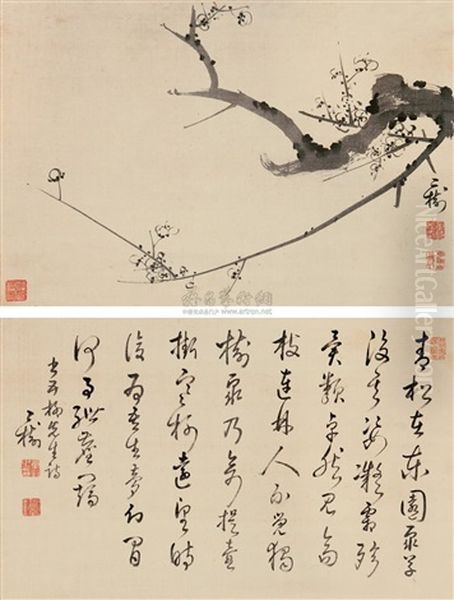 二樹
青松在東園眾草
沒其姿凝霜殄
異類卓然見高
枝連林人不覺獨
樹眾乃奇提壺
掛寒柯遠望時
復為吾生夢幻間
何事紲塵羈
書五柳先生詩
二樹
雅昌藝術網
www.artron.net